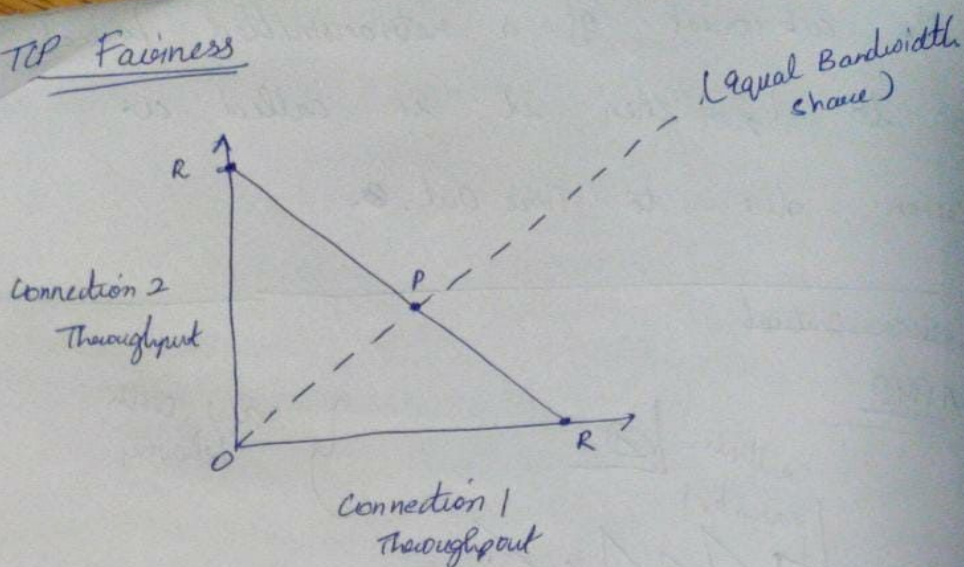 TCP Fairness
(equal Bandwidth
share)
R
Connection 2
Throughput
P
O
R
Connection 1
Throughput